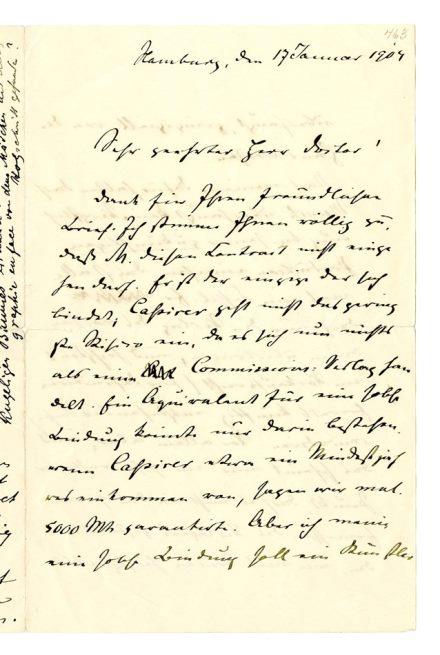 763
Hamburg, den 17 Januar 1904
Sehr geehrter Herr Doctor!
Dank für Ihren freundlichen
Brief. Ich stimme Ihnen völlig zu,
daß M. diesen Contract nicht einge
hen darf. Er ist der einzige der sich
bindet, Cassirer geht nicht das gering
ste Risico ein, da es sich um nichts
als einen Commissions-Verlag han
delt. Ein Äquivalent für eine solche
Bindung könnte nur darin bestehen,
wenn Cassirer etwa ein Mindestjah
reseinkommen von, sagen wir mal
5000 Mk garantirte. Aber ich meine
eine solche Bindung soll ein Künstler